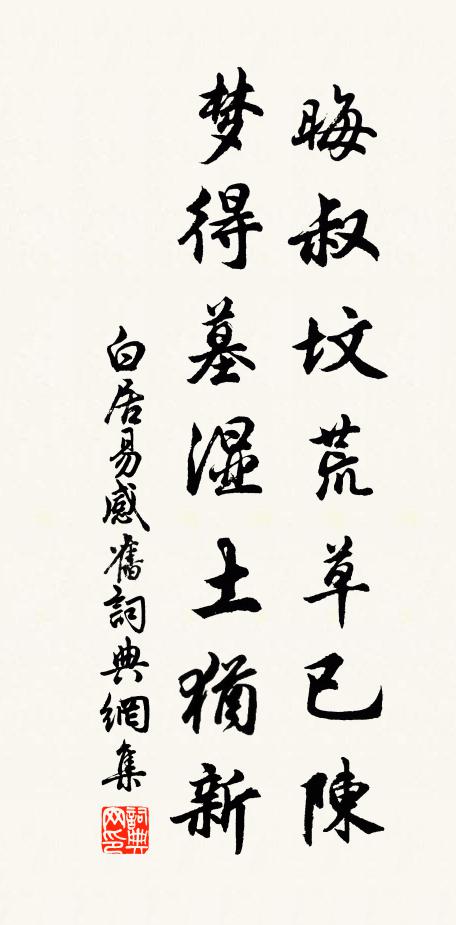 晦叔坟荒草已陳
梦得墓湿土猶新
白居易感舊詞典網集
詞典网印